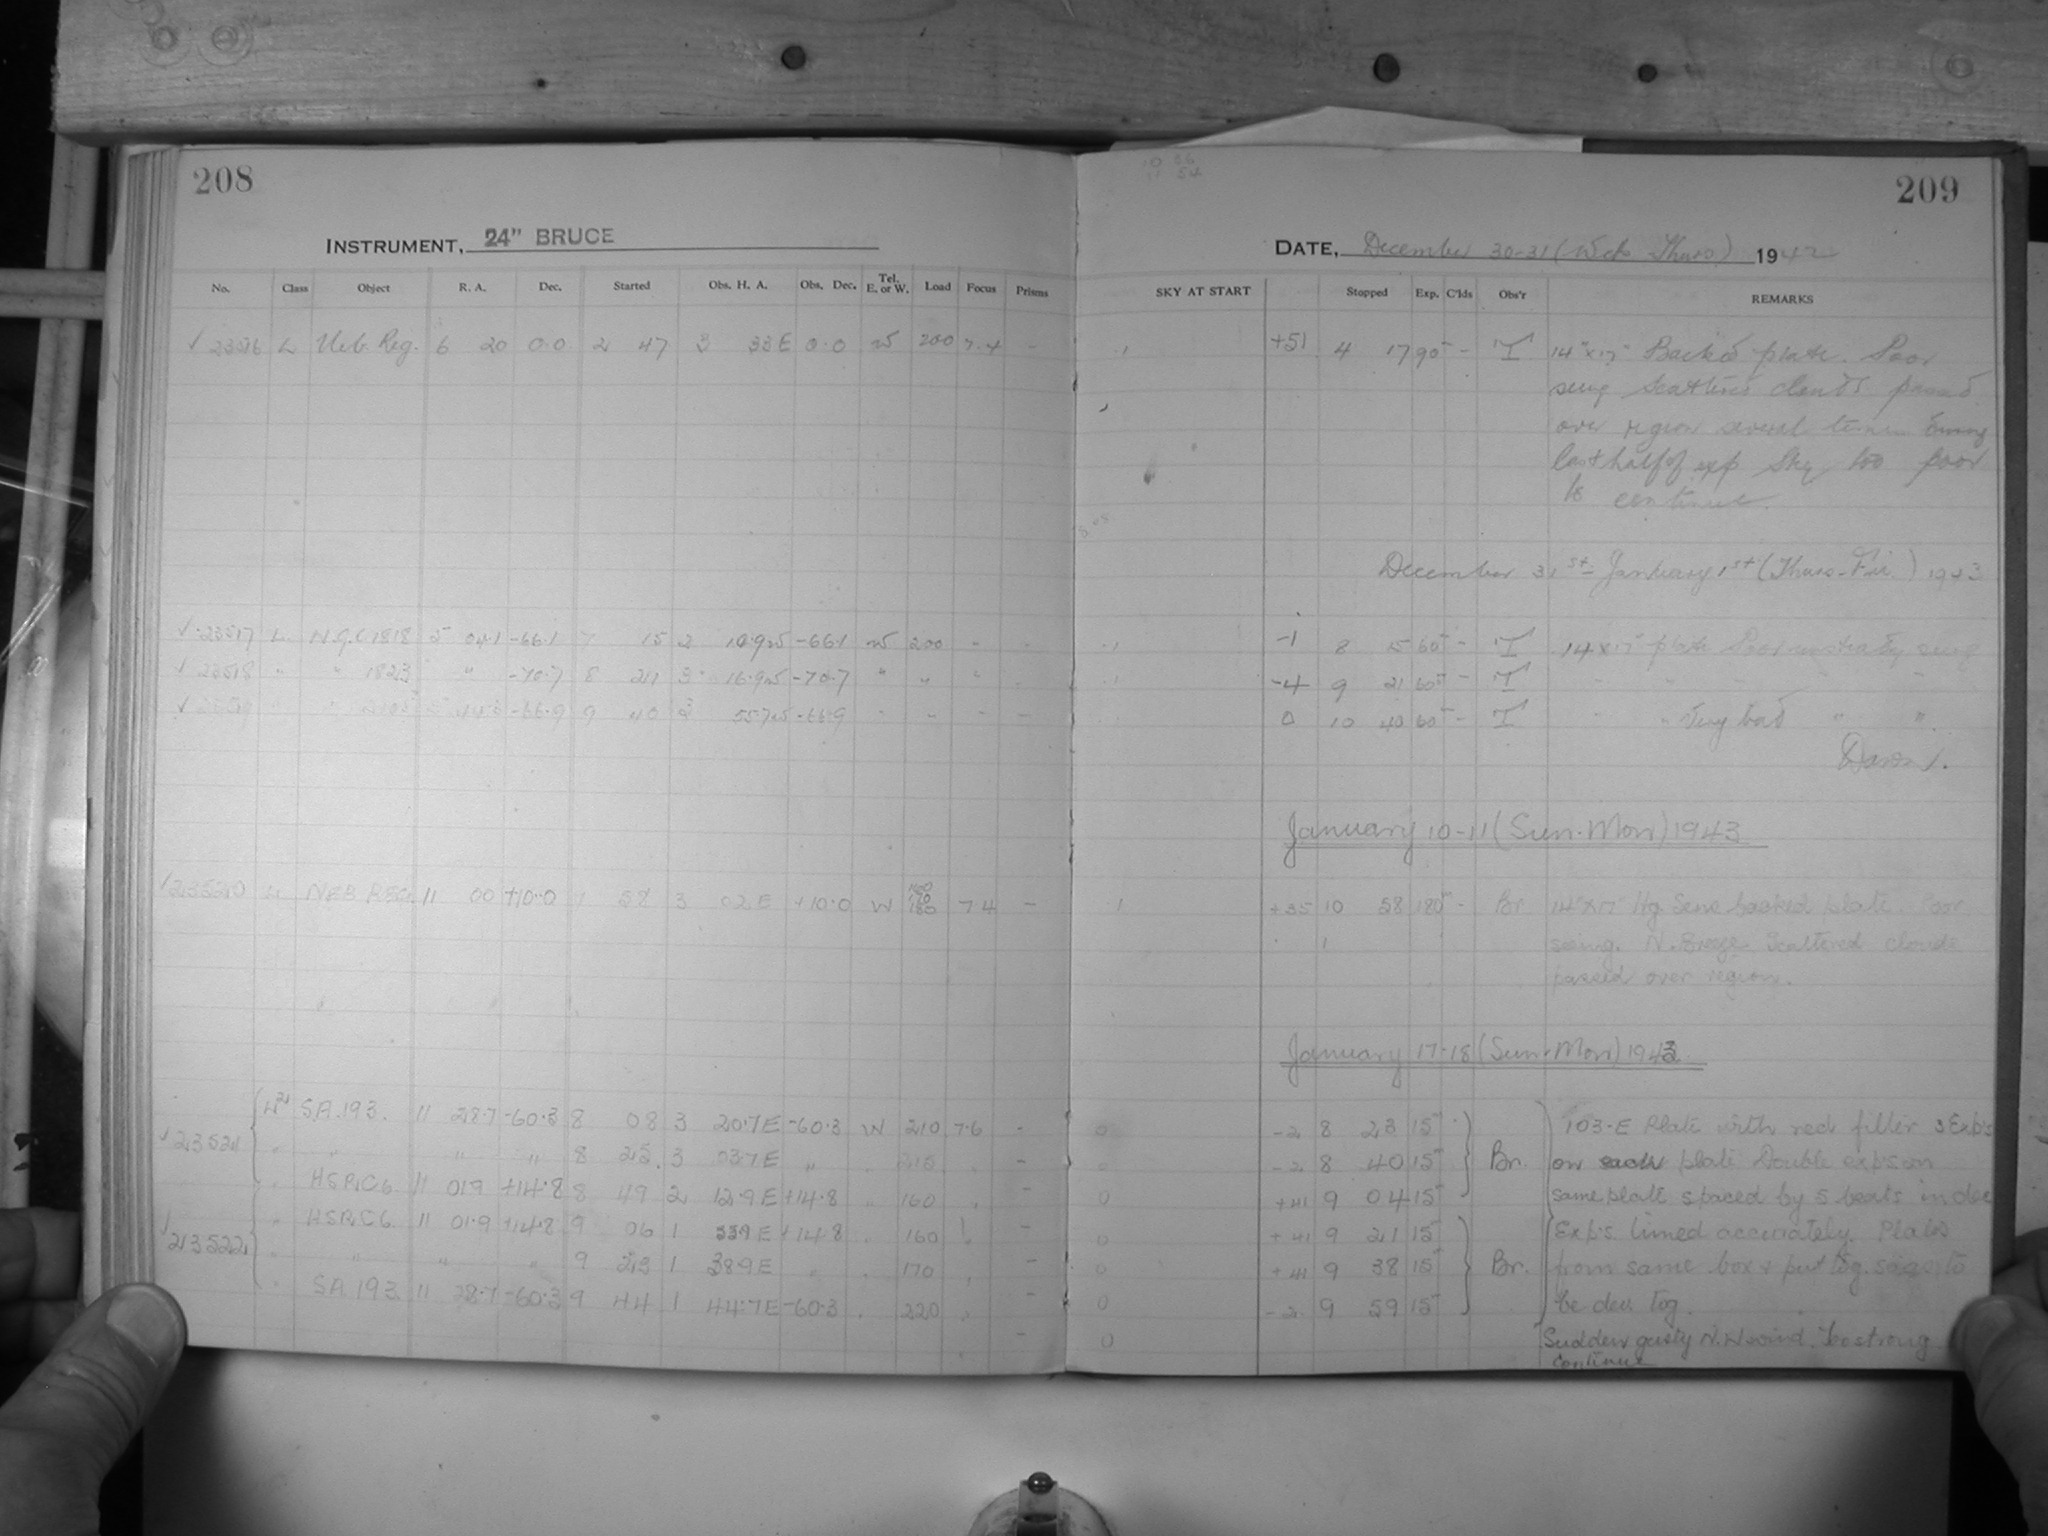 208
INSTRUMENT, 24" BRUCE
No. Class Object R. A. Dec. Started Obs. H. A. Obs. Dec. Tel. E. or W. Load Focus Prisms
✓ 23516 L Neb. Reg. 6 20 0.0 2 47 3 33 E 0.0 W 200 7.4 -
✓ 23517 L N.G.C 1818 5 04.1 -66.1 7 15 2 W -66.1 W 200 - -
✓ 23518 " " 1823 " -70.7 8 21 3 16.9W -70.7 " "
✓ 23519 " 5 -66.9 9 40 3 55.7W -66.9 - - - -
✓ 23520 L NEB REG. 11 00 +10.0 7 58 3 02 E +10.0 W 7.4 -
✓ 23521 S.A. 193. 11 28.7 -60.3 8 08 3 20.7 E -60.3 W 210 7.6 -
" " " " 8 25 3 03.7 E " -
" HSPC6 11 01.9 +14.8 8 49 2 12.9 E +14.8 " 160 -
✓ 23522 " HSPC6 11 01.9 +14.8 9 06 1 E +14.8 160 -
" " " " 9 23 1 38.9 E " 170 -
S.A. 193. 11 28.7 -60.3 9 44 1 44.7 E -60.3 220 -
10 36
11 54
209
DATE, December 30-31 (Wed-Thurs) 1942
SKY AT START Stopped Exp. C'lds Obs'r REMARKS
1 +51 4 17 90 - T 14"x17" Backed plate. Poor
seeing scattered clouds passed
over region several times during
last half of exp Sky too poor
to continue.
December 31st- January 1st (Thurs-Fri.) 1943
1 -1 8 15 60 - T 14x17" plate Poor unsteady seeing
1 -4 9 21 60 - T " " " "
0 10 40 60 - T " " Very bad " "
Dawn.
January 10-11 (Sun-Mon) 1943
1 +35 10 58 180 - Br. 14"x17" Hg Sens backed plate. Poor
seeing. N. Breeze. Scattered clouds
passed over region.
January 17-18 (Sun-Mon) 1943
0 -2 8 23 15 103-E Plate with red filter 3 Exp's
0 -2 8 40 15 Br. on each plate Double exp's on
0 +41 9 04 15 same plate spaced by 5 beats in dec
0 +41 9 21 15 Exp's timed accurately. Plates
0 +41 9 38 15 Br. from same box & put tog.
0 -2 9 59 15 be dev. tog.
0 Sudden gusty N.W wind. too strong
continue